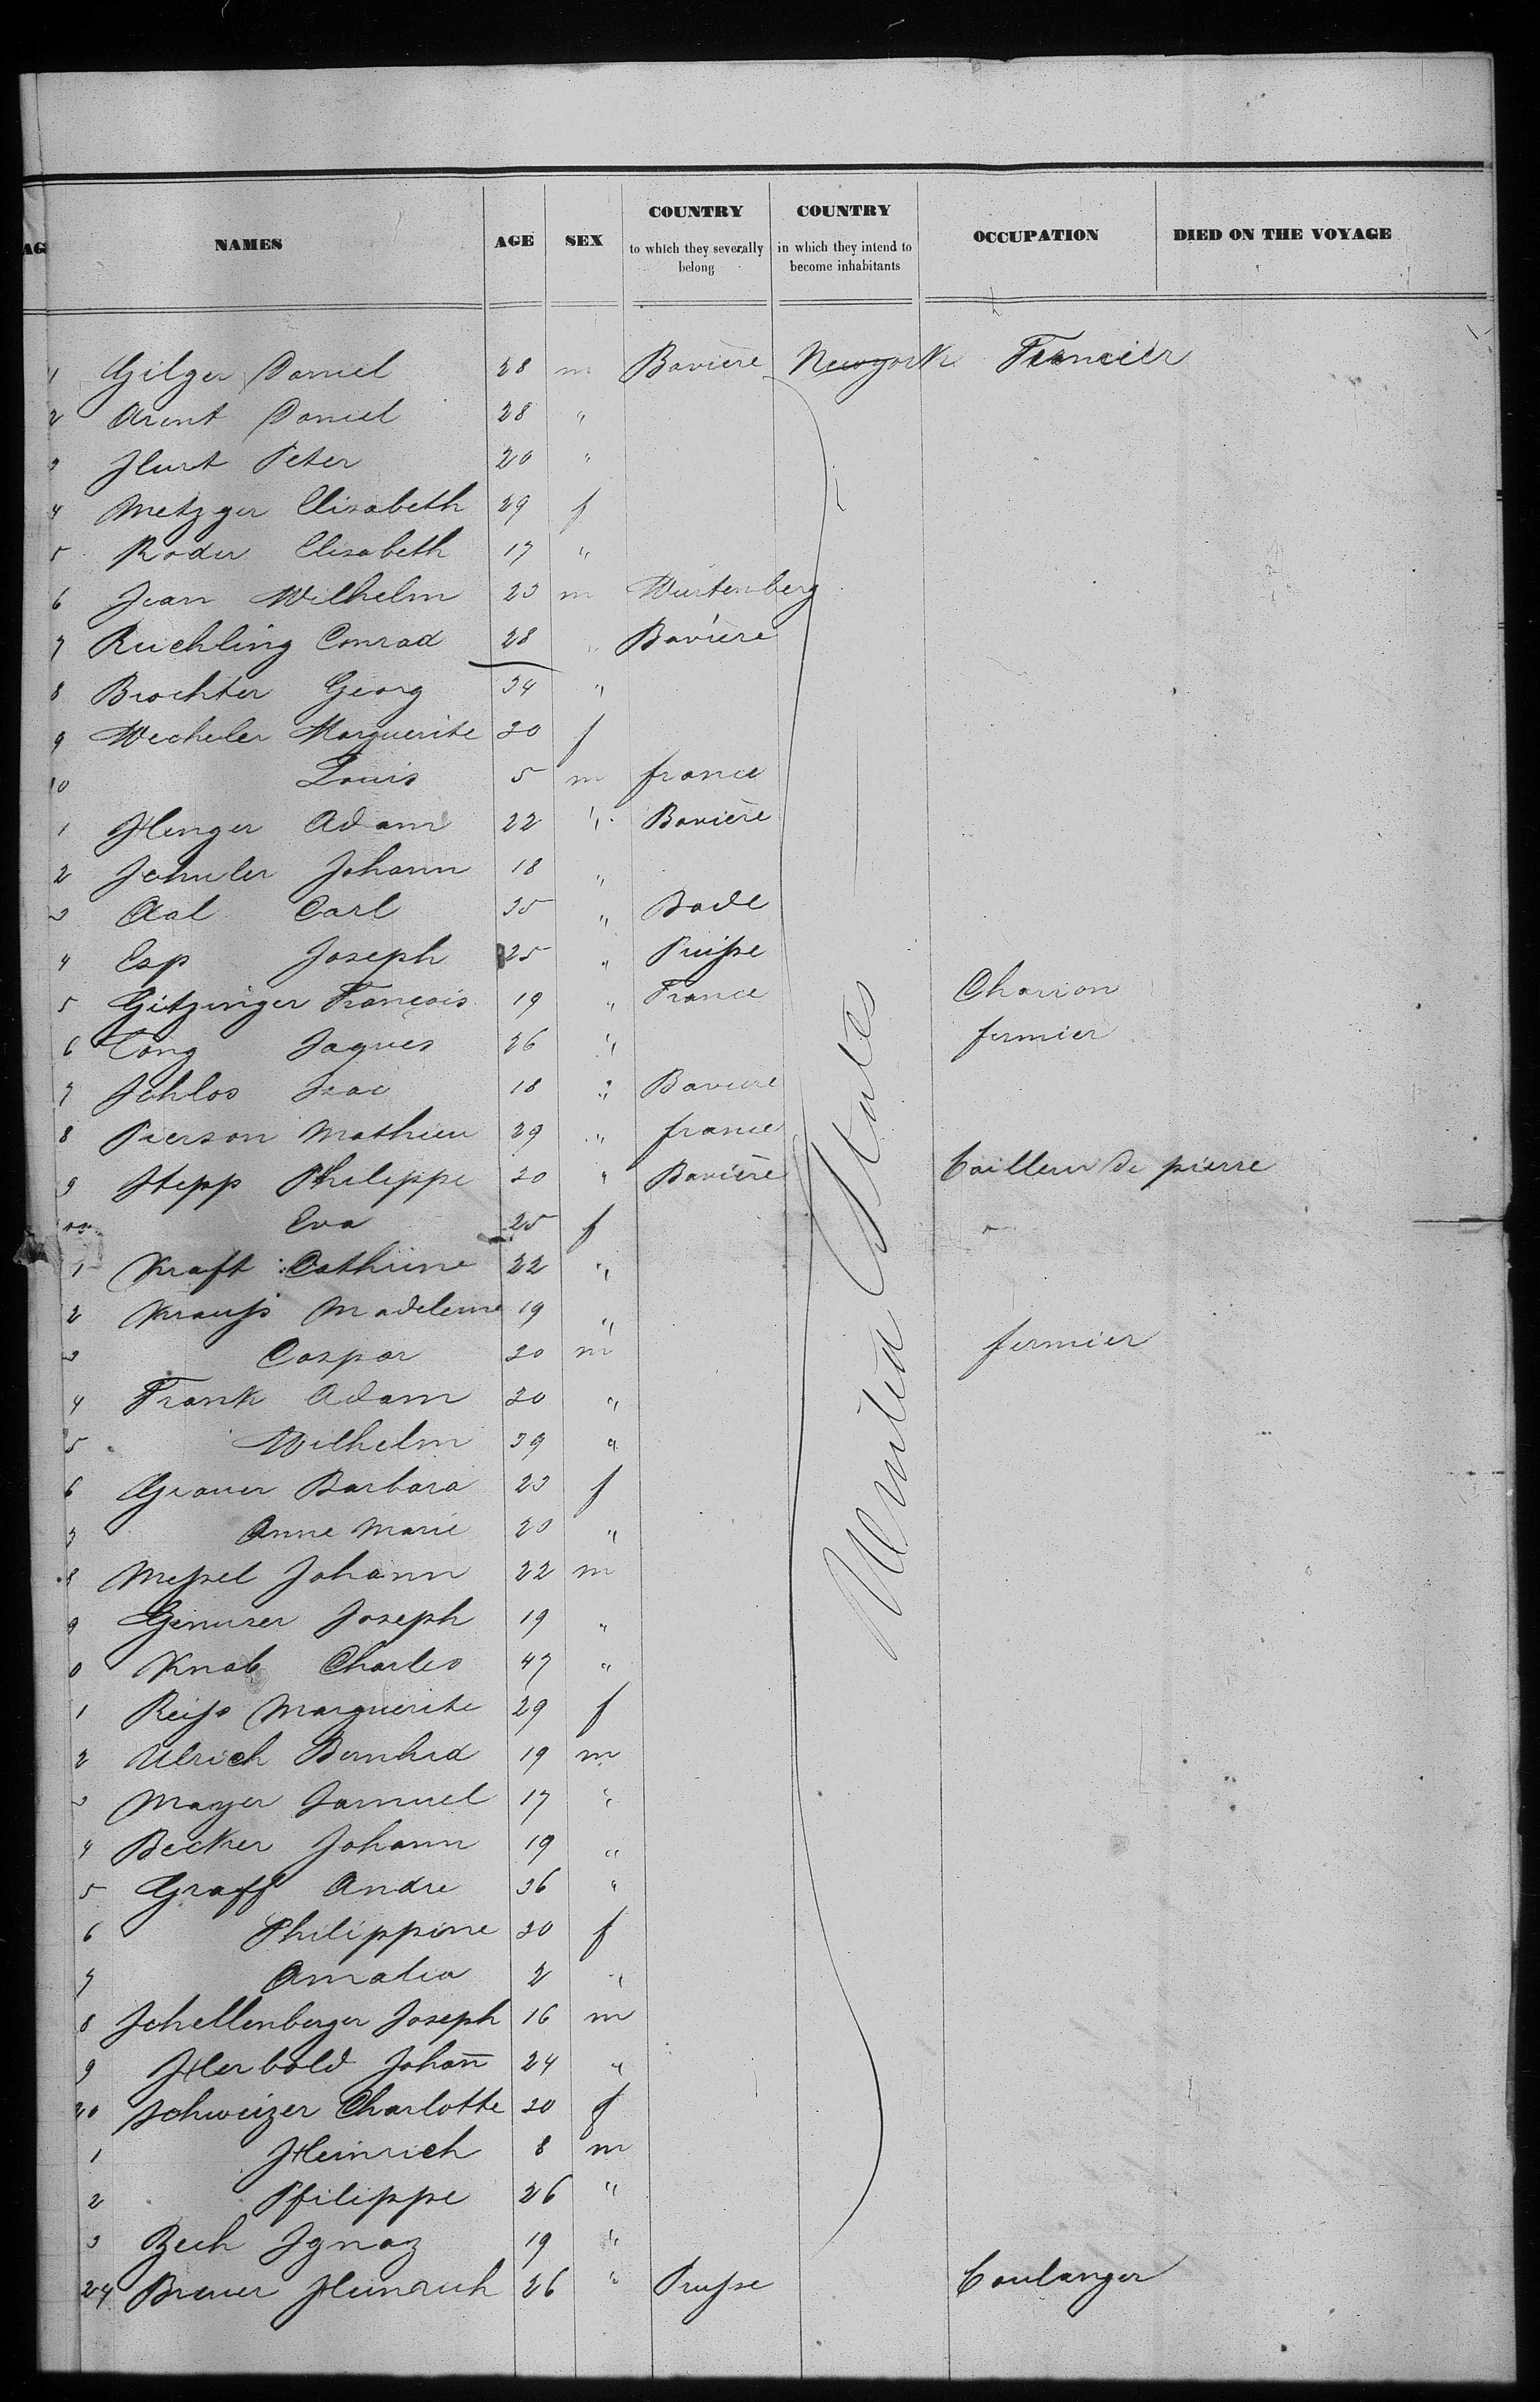 AG NAMES AGE SEX COUNTRY to which they severally belong COUNTRY in which they intend to become inhabitants OCCUPATION DIED ON THE VOYAGE
1 Gilger Daniel 28 m Bavière Newyork
2 Arent Daniel 28 "
3 Hurt Peter 20 "
4 Metzger Elisabeth 29 f
5 Roder Elisabeth 17 "
6 Jean Wilhelm 23 m Würtenberg
7 Ruchling Conrad 28 " Bavière
8 Brochter Georg 34 "
9 Wecheler Marguerite 30 f
10 Louis 5 m france
1 Henger Adam 22 " Bavière
2 Johann 18 "
3 Aal Carl 35 " Bade
4 Esp Joseph 25 "
5 Gitzinger François 19 " France Charron
6 Jaques 26 " fermier
7 Schlos Isac 18 " Baviere
8 Pierson Mathieu 29 " france
9 Stepp Philippe 30 " Bavière tailleur de pierre
Eva 25 f "
1 Kraft Cathrine 22 "
2 Krauß Madeleine 19 "
3 Caspar 30 m fermier
4 Frank Adam 30 "
5 Wilhelm 39 "
6 Grauer Barbara 23 f
7 Anne Marie 20 "
8 Meßel Johann 22 m
9 Genuser Joseph 19 "
0 Knab Charles 47 "
1 Reiß Marguerite 29 f
2 Ulrich Bernhrd 19 m
3 Mayer Samuel 17 "
4 Becker Johann 19 "
5 Graff Andre 36 "
6 Philippine 30 f
7 Amalia 2 "
8 Schellenberger Joseph 16 m
9 Herbold Johan̅ 24 "
20 Schweizer Charlotte 30 f
1 Heinrich 8 m
2 Pfilippe 26 "
3 Zech Ignaz 19 "
24 Breuer Heinrich 26 " Prusse boulanger
United States